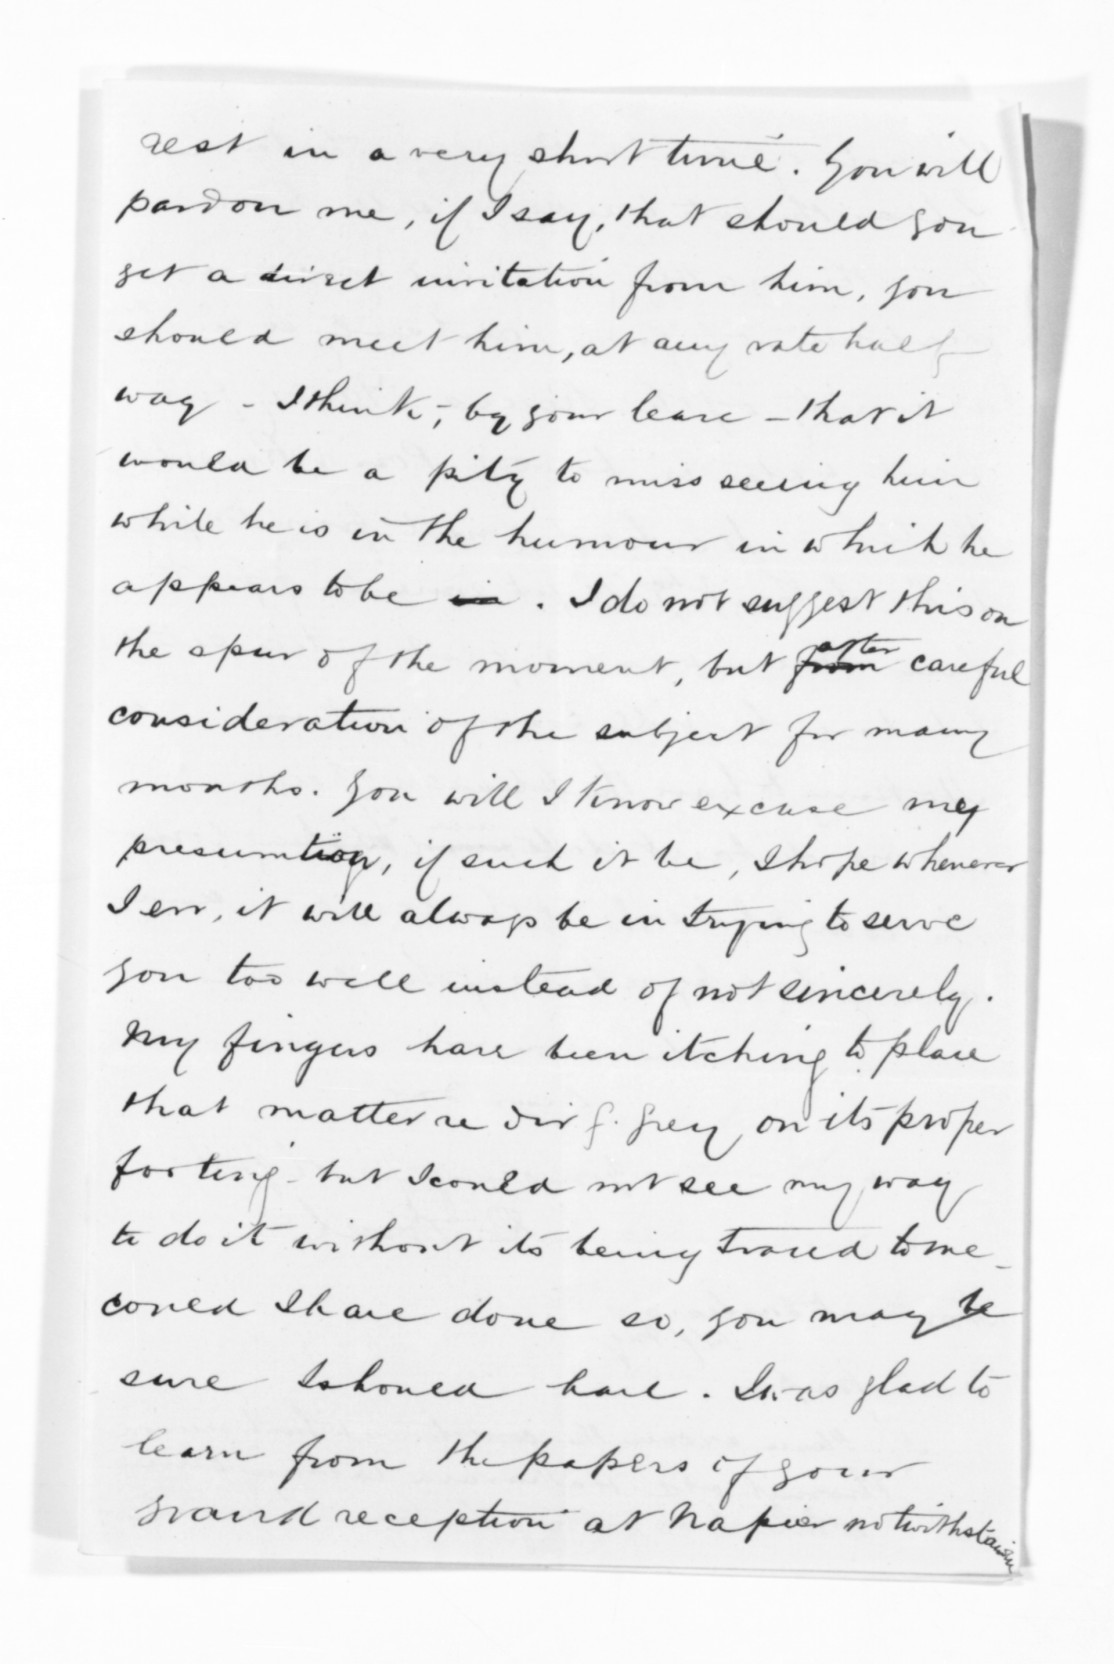 rest in a very short time. You will
pardon me, if I say, that should you
get a direct invitation from him, you
should meet him, at any rate half
way - I think, - by your leave - that it
would be a pity to miss seeing him
while he is in the humour in which he
appears to be in. I do not suggest this on
the spur of the moment, but from after careful
consideration of the subject for many
months. You will I know excuse my
presumtion, if such it be, I hope whenever
I err, it will always be in trying to serve
you too well instead of not sincerely.
My fingers have been itching to place
that matter re Sir G. Grey on its proper
footing - but I could not see my way
to do it without its being traced to me -
could I have done so, you may be
sure I should have. I was glad to
learn from the papers of your
grand reception at Napier notwithstandin